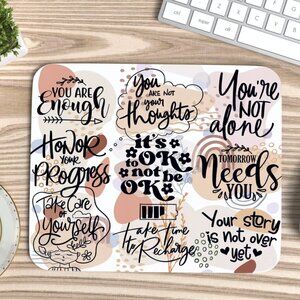 YOU ARE
Enough
You
ARE NOT
your
thoughts
You're
NOT
alone
HONOR
your
PROGRESS
it's
OK to
not be
OK
TOMORROW
Needs
YOU
Take Care
OF
Yourself
Take Time
To Recharge
Your story
is not over
yet